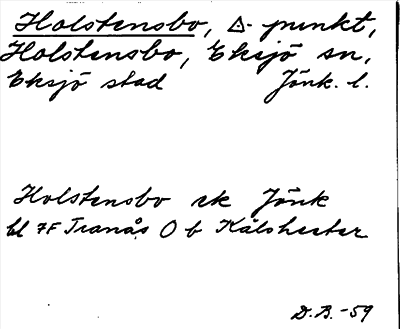 Holstensbo, △- punkt,
Holstensbo, Eksjö sn,
Eksjö stad Jönk. l.
Holstensbo ek Jönk
bl 7F Tranås O b Kälshester
D.B. -59